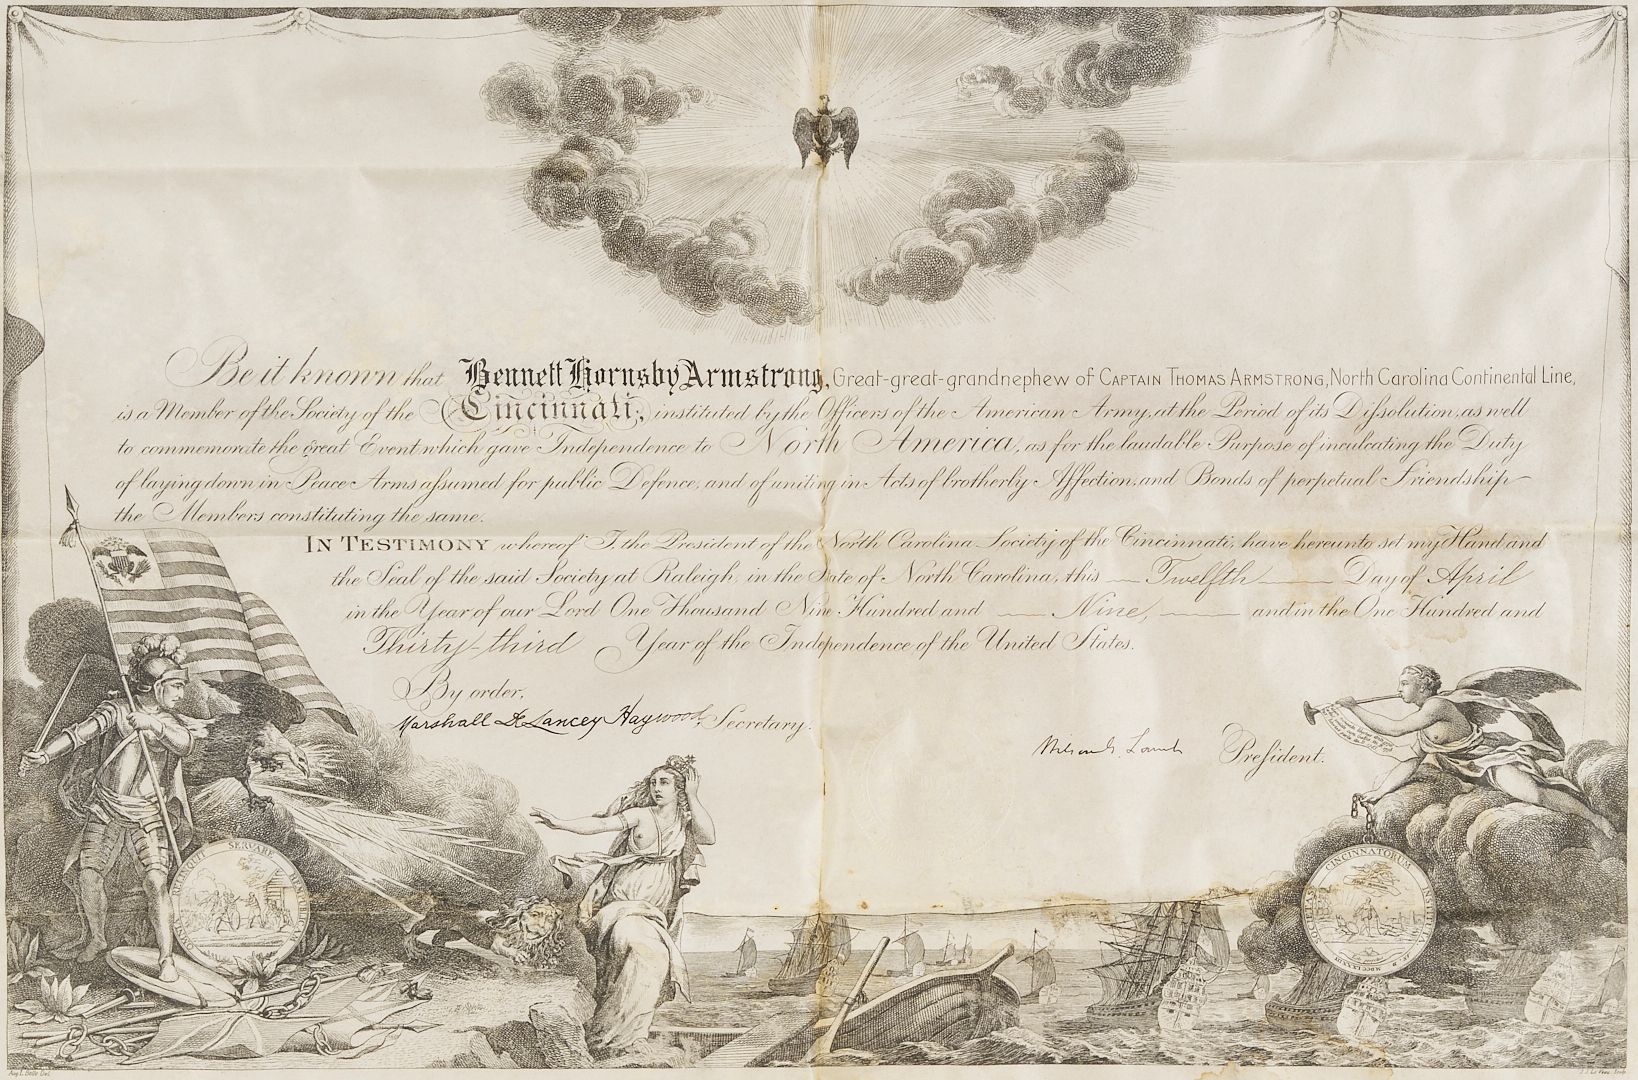 Be it known that Bennett Hornsby Armstrong, Great-great-grandnephew of CAPTAIN THOMAS ARMSTRONG, North Carolina Continental Line,
is a Member of the Society of the Cincinnati; instituted by the Officers of the American Army, at the Period of its Dissolution, as well
to commemorate the great Event which gave Independence to North America, as for the laudable Purpose of inculcating the Duty
of laying down in Peace Arms assumed for public Defence, and of uniting in Acts of brotherly Affection, and Bonds of perpetual Friendship
the Members constituting the same.
IN TESTIMONY whereof I, the President of the North Carolina Society of the Cincinnati, have hereunto set my Hand and
the Seal of the said Society at Raleigh, in the State of North Carolina, this Twelfth Day of April
in the Year of our Lord One Thousand Nine Hundred and Nine, and in the One Hundred and
Thirty-third Year of the Independence of the United States.
By order,
Marshall De Lancey Haywood Secretary.
Wilson G. Lamb President.
OMNIA RELINQUIT SERVARE REMPUBLICAM
SOCIETAS CINCINNATORUM INSTITUTA
A.D. MDCCLXXXIII
Aug. L. Belle Del.